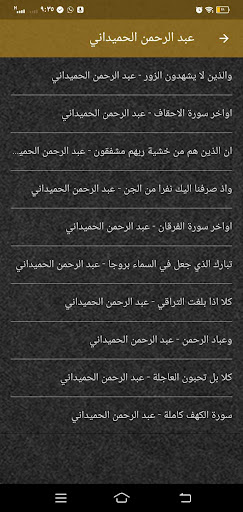 ٩:٣٥
عبد الرحمن الحميداني
والذين لا يشهدون الزور - عبد الرحمن الحميداني
اواخر سورة الاحقاف - عبد الرحمن الحميداني
ان الذين هم من خشية ربهم مشفقون - عبد الرحمن الحميد...
واذ صرفنا اليك نفرا من الجن - عبد الرحمن الحميداني
اواخر سورة الفرقان - عبد الرحمن الحميداني
تبارك الذي جعل في السماء بروجا - عبد الرحمن الحميداني
كلا اذا بلغت التراقي - عبد الرحمن الحميداني
وعباد الرحمن - عبد الرحمن الحميداني
كلا بل تحبون العاجلة - عبد الرحمن الحميداني
سورة الكهف كاملة - عبد الرحمن الحميداني